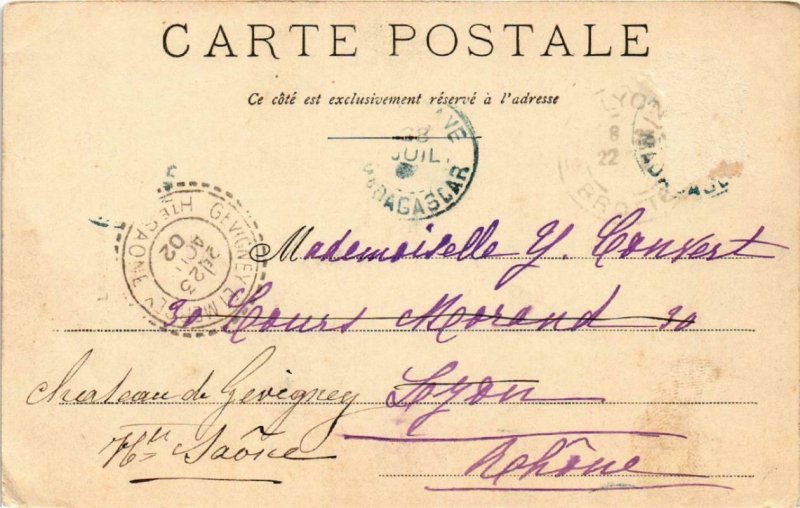 CARTE POSTALE
Ce côté est exclusivement réservé à l'adresse
28
JUIL
MADAGASCAR
LYON
8
22
MADAGASC
GEVIGNEY
Hte SAONE
23
02
Mademoiselle Y. Convert
30 Cours Morand 30
Chateau de Gevigney Lyon
Hte Saône Rhône